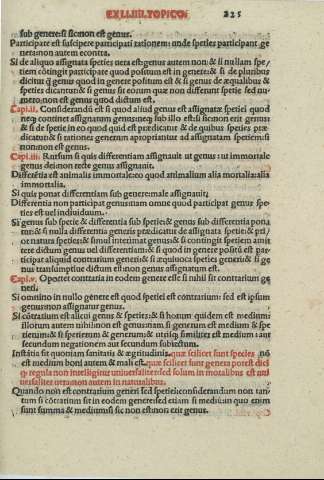 EX LI.IIII. TOPICO. 225
sub genere: si sic non est genus.
Participare est suscipere participati rationem: unde species participant genera non autem econtra.
Si de aliquo assignata species vera est: genus autem non: & si nullam speciem cõtingit participare quod positum est in genere: & si de pluribus
dicitur q̃ genus quod in genere positum est & si genus de æqualibus &
species dicantur: & si genus sit eorum quæ non differunt specie sed numero: non est genus quod dictum est.
Capi.ii. Considerandũ est si quod aliud genus est assignatæ speciei quod
neq; continet assignatum genus: neq; sub illo est: si sic non erit genus
& si de specie in eo quod quid est prædicatur & de quibus species prædicatur: & si rationes generum appropriantur ad assignatam speciem: si
non: non est genus.
Capi.iii. Rursum si quis differentiam assignauit ut genus: ut immortale
genus dei: non recte genus assignauit.
Differẽtia est animalis immortale: eo quod animalium alia mortalia: alia
immortalia.
Si quis ponat differentiam sub genere: male assignauit:
Differentia non participat genus: nam omne quod participat genus species est uel indiuiduum.
Si genus sub specie & differentia sub specie: & genus sub differentia ponatur: & si nulla differentia generis prædicatur de assignata specie: & prior natura species: & simul interimat genus: & si contingit speciem amittere dictum genus uel differentiam: & si quod in genere positũ est participat aliquid contrarium generi: & si æquiuoca species generi: & si genus transumptiue dictum est: non est genus assignatum est.
Capi.v. Oportet contraria in eodem genere esse si nihil sit contrarium generi.
Si omnino in nullo genere est quod speciei est contrarium: sed est ipsum
genus: non assignatur genus.
Si cõtrarium est alicui genus & species: & si horum quidem est medium:
illorum autem nihil: non est genus: nam si generum est medium & specierum: & si specierum & generum: & utriq; similiter est medium: aut
secundum negationem aut secundum subiectum.
Instãtia sit quoniam sanitatis & ægritudinis, quæ scilicet sunt species nõ
est medium boni autem & mali est. quæ scilicet sunt genera potest dici
q̃ regula non intelligitur uniuersaliter: sed solum in moralibus est uniuersaliter uera: non autem in naturalibus.
Quando non est contrarium generi sed speciei: considerandum non tantum si cõtrarium sit in eodem genere: sed etiam si medium: quo enim
sunt summa & medium: si sic non est: non erit genus.